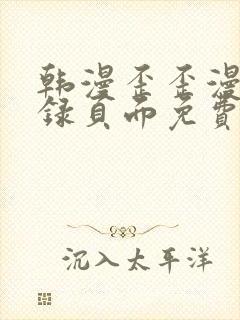 韩漫歪歪漫
录页面免费
沉入太平洋